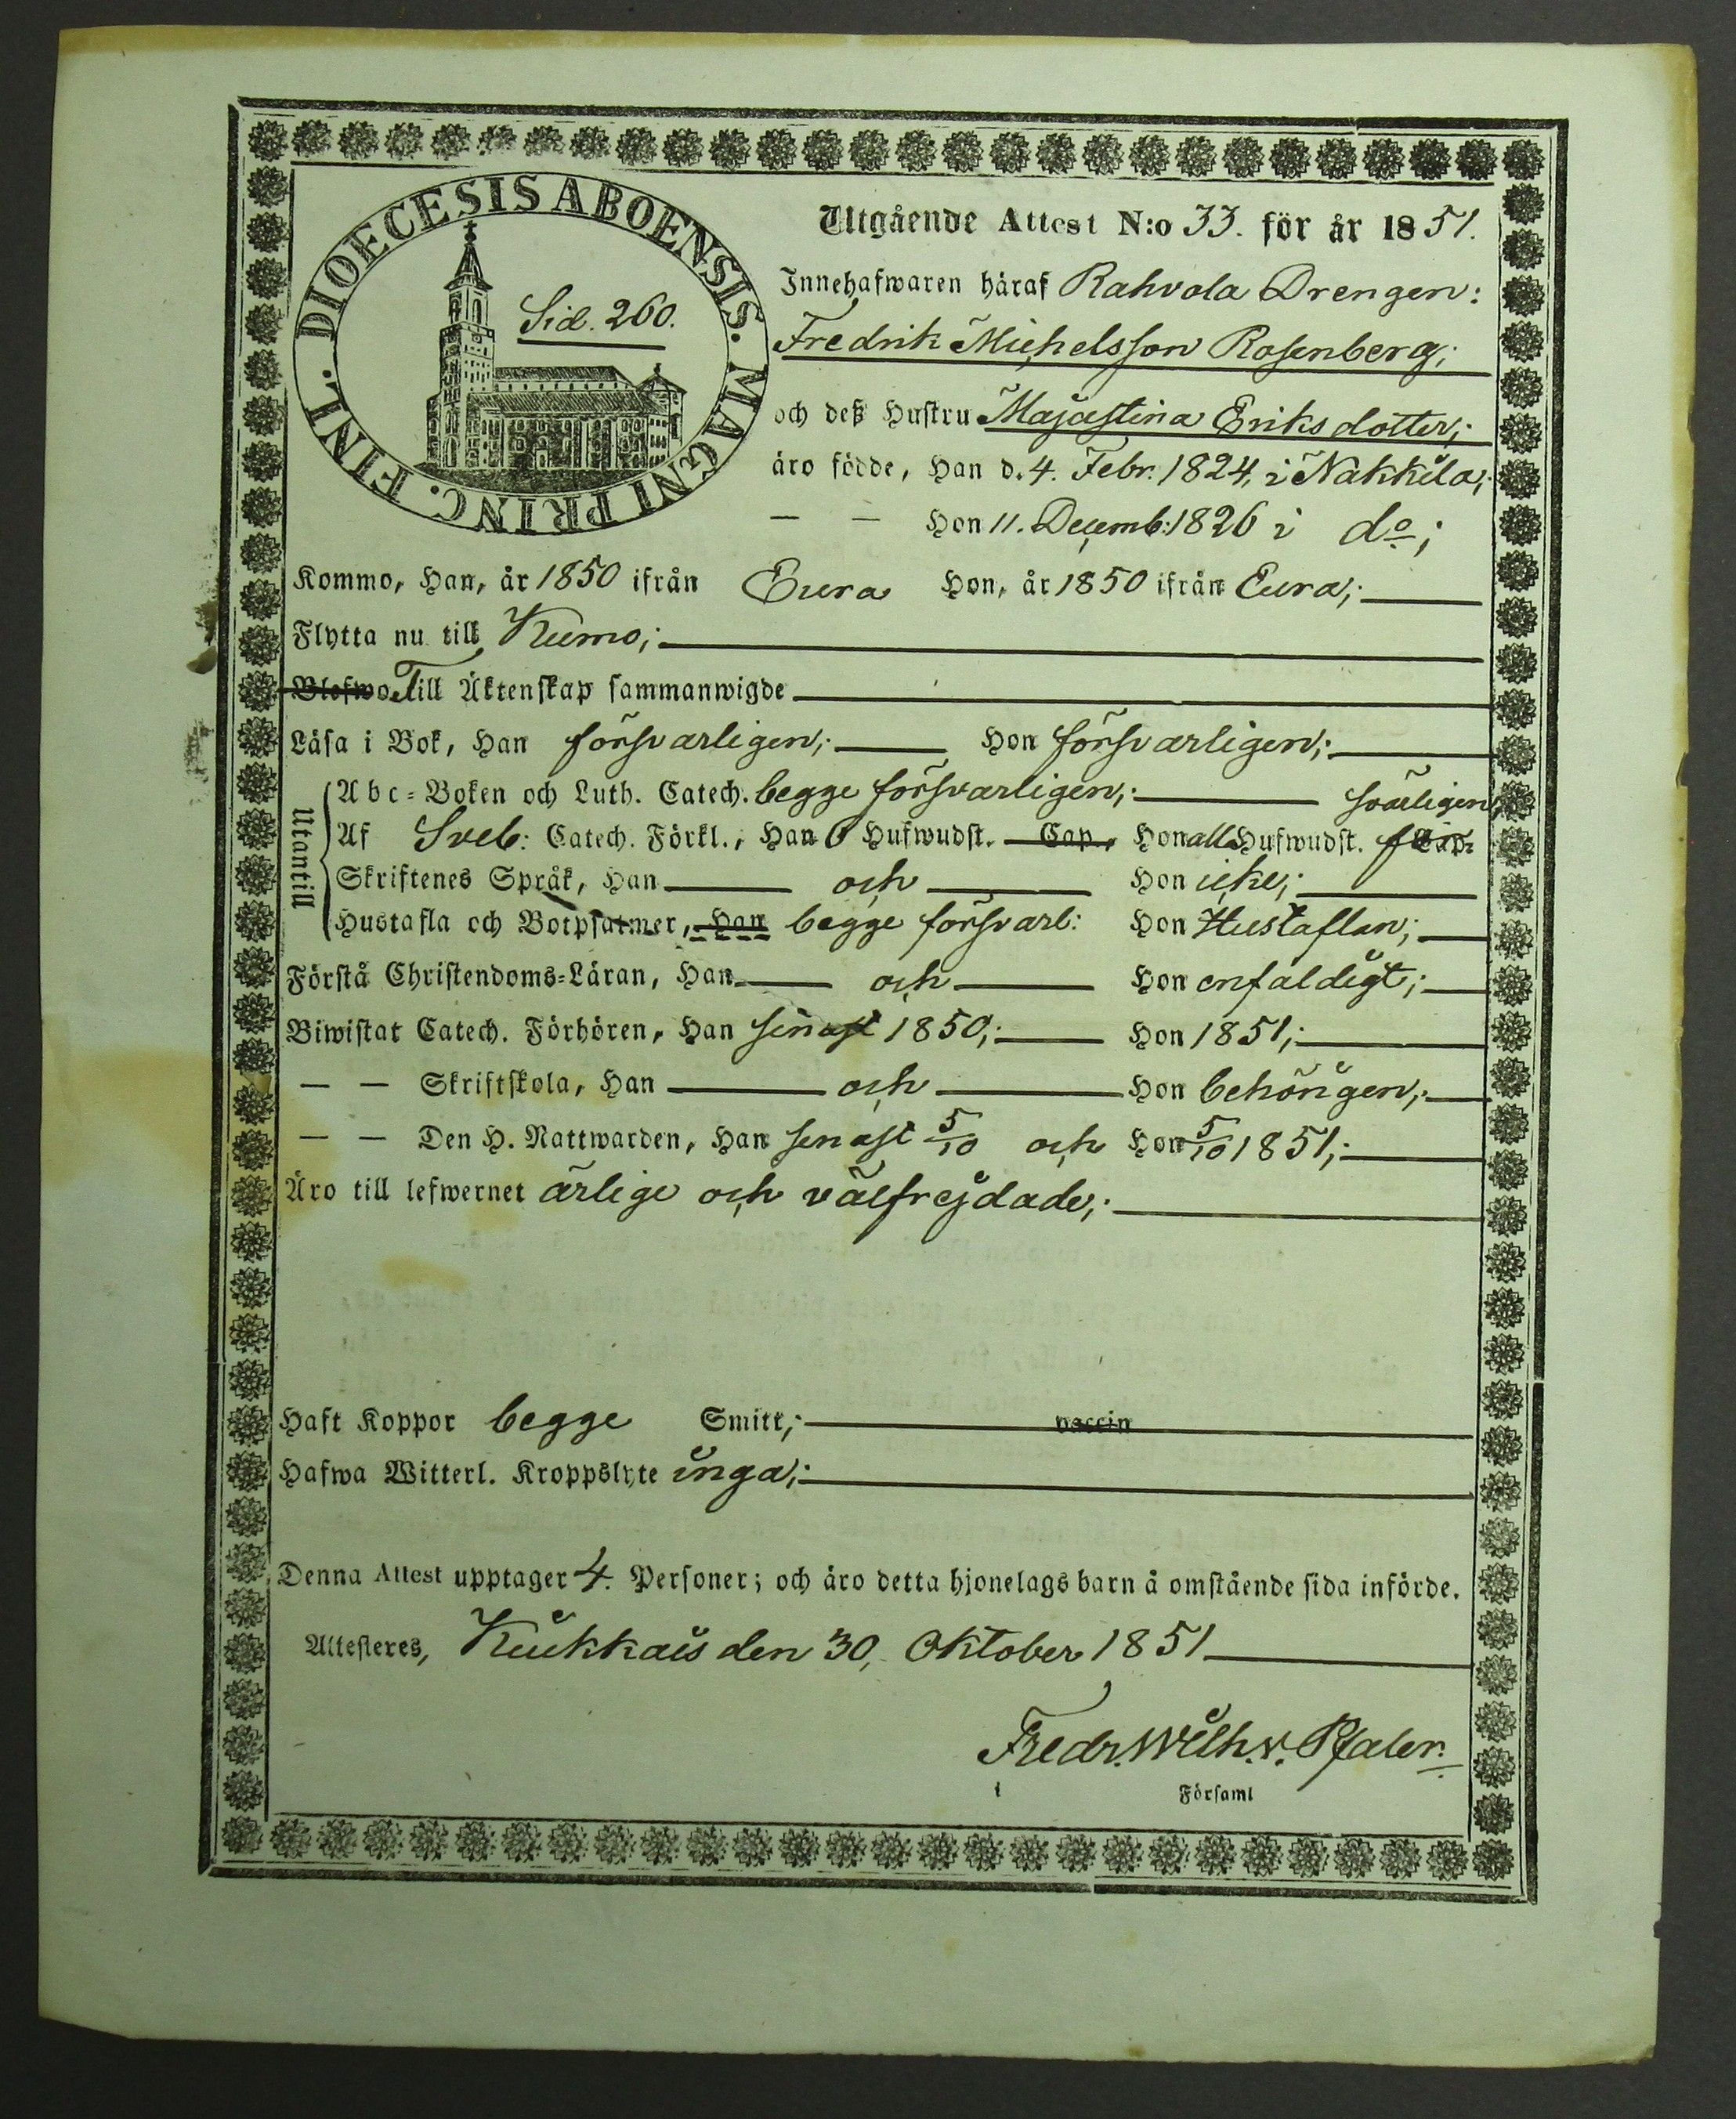 DIOECESIS ABOENSIS. MAGNI PRINC. FINL.
Sid. 260.
Utgående Attest N:o 33. för år 1851.
Innehafwaren häraf Rahvola Drengen:
Fredrik Michelsson Rosenberg;
och deß Hustru Majastina Eriksdotter;
äro födde, Han d. 4. Febr. 1824, i Nakkila;
— — Hon 11. Decemb: 1826 i do;
Kommo, Han, år 1850 ifrån Eura Hon, år 1850 ifrån Eura;
Flytta nu till Kumo;
Blefwo Till Äktenskap sammanwigde
Läsa i Bok, Han försvarligen; Hon försvarligen;
Utantill
Abc-Boken och Luth. Catech. begge försvarligen; svarligen;
Af Sveb: Catech. Förkl., Han 6 Hufwudst. Cap., Hon all Hufwudst. för Cap.
Skriftenes Språk, Han och Hon icke;
Hustafla och Botpsalmer, Han begge försvarl: Hon Hustaflan;
Förstå Christendoms-Läran, Han och Hon enfaldigt;
Biwistat Catech. Förhören, Han senast 1850; Hon 1851;
— — Skriftskola, Han och Hon behörigen;
— — Den H. Nattwarden, Han senast 5/10 och Hon 5/10 1851;
Äro till lefwernet ärlige och välfrejdade;
Haft Koppor begge Smitt; vaccin
Hafwa Witterl. Kroppslyte inga;
Denna Attest upptager 4. Personer; och äro detta hjonelags barn å omstående sida införde.
Attesteres, Kiukkais den 30, Oktober 1851
Fredr. Wilh. v. Pfaler.
i Församl